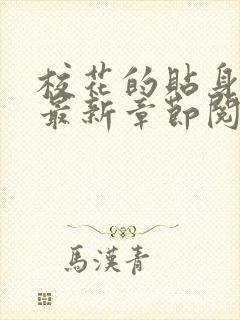 校花的貼身
最新章節閱
馬漢青